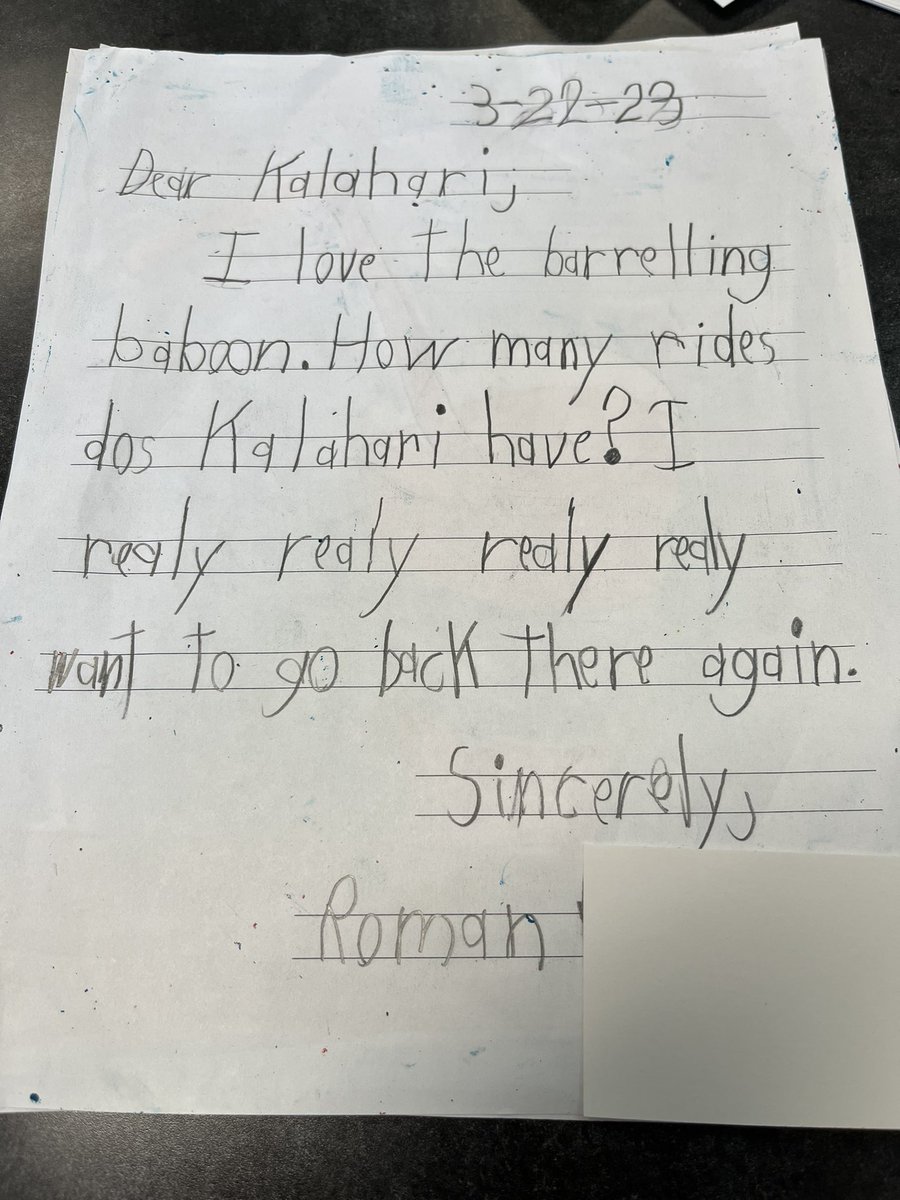 3-22-23
Dear Kalahari,
I love the barrelling
baboon. How many rides
dos Kalahari have? I
realy realy realy realy
want to go back there again.
Sincerely,
Roman